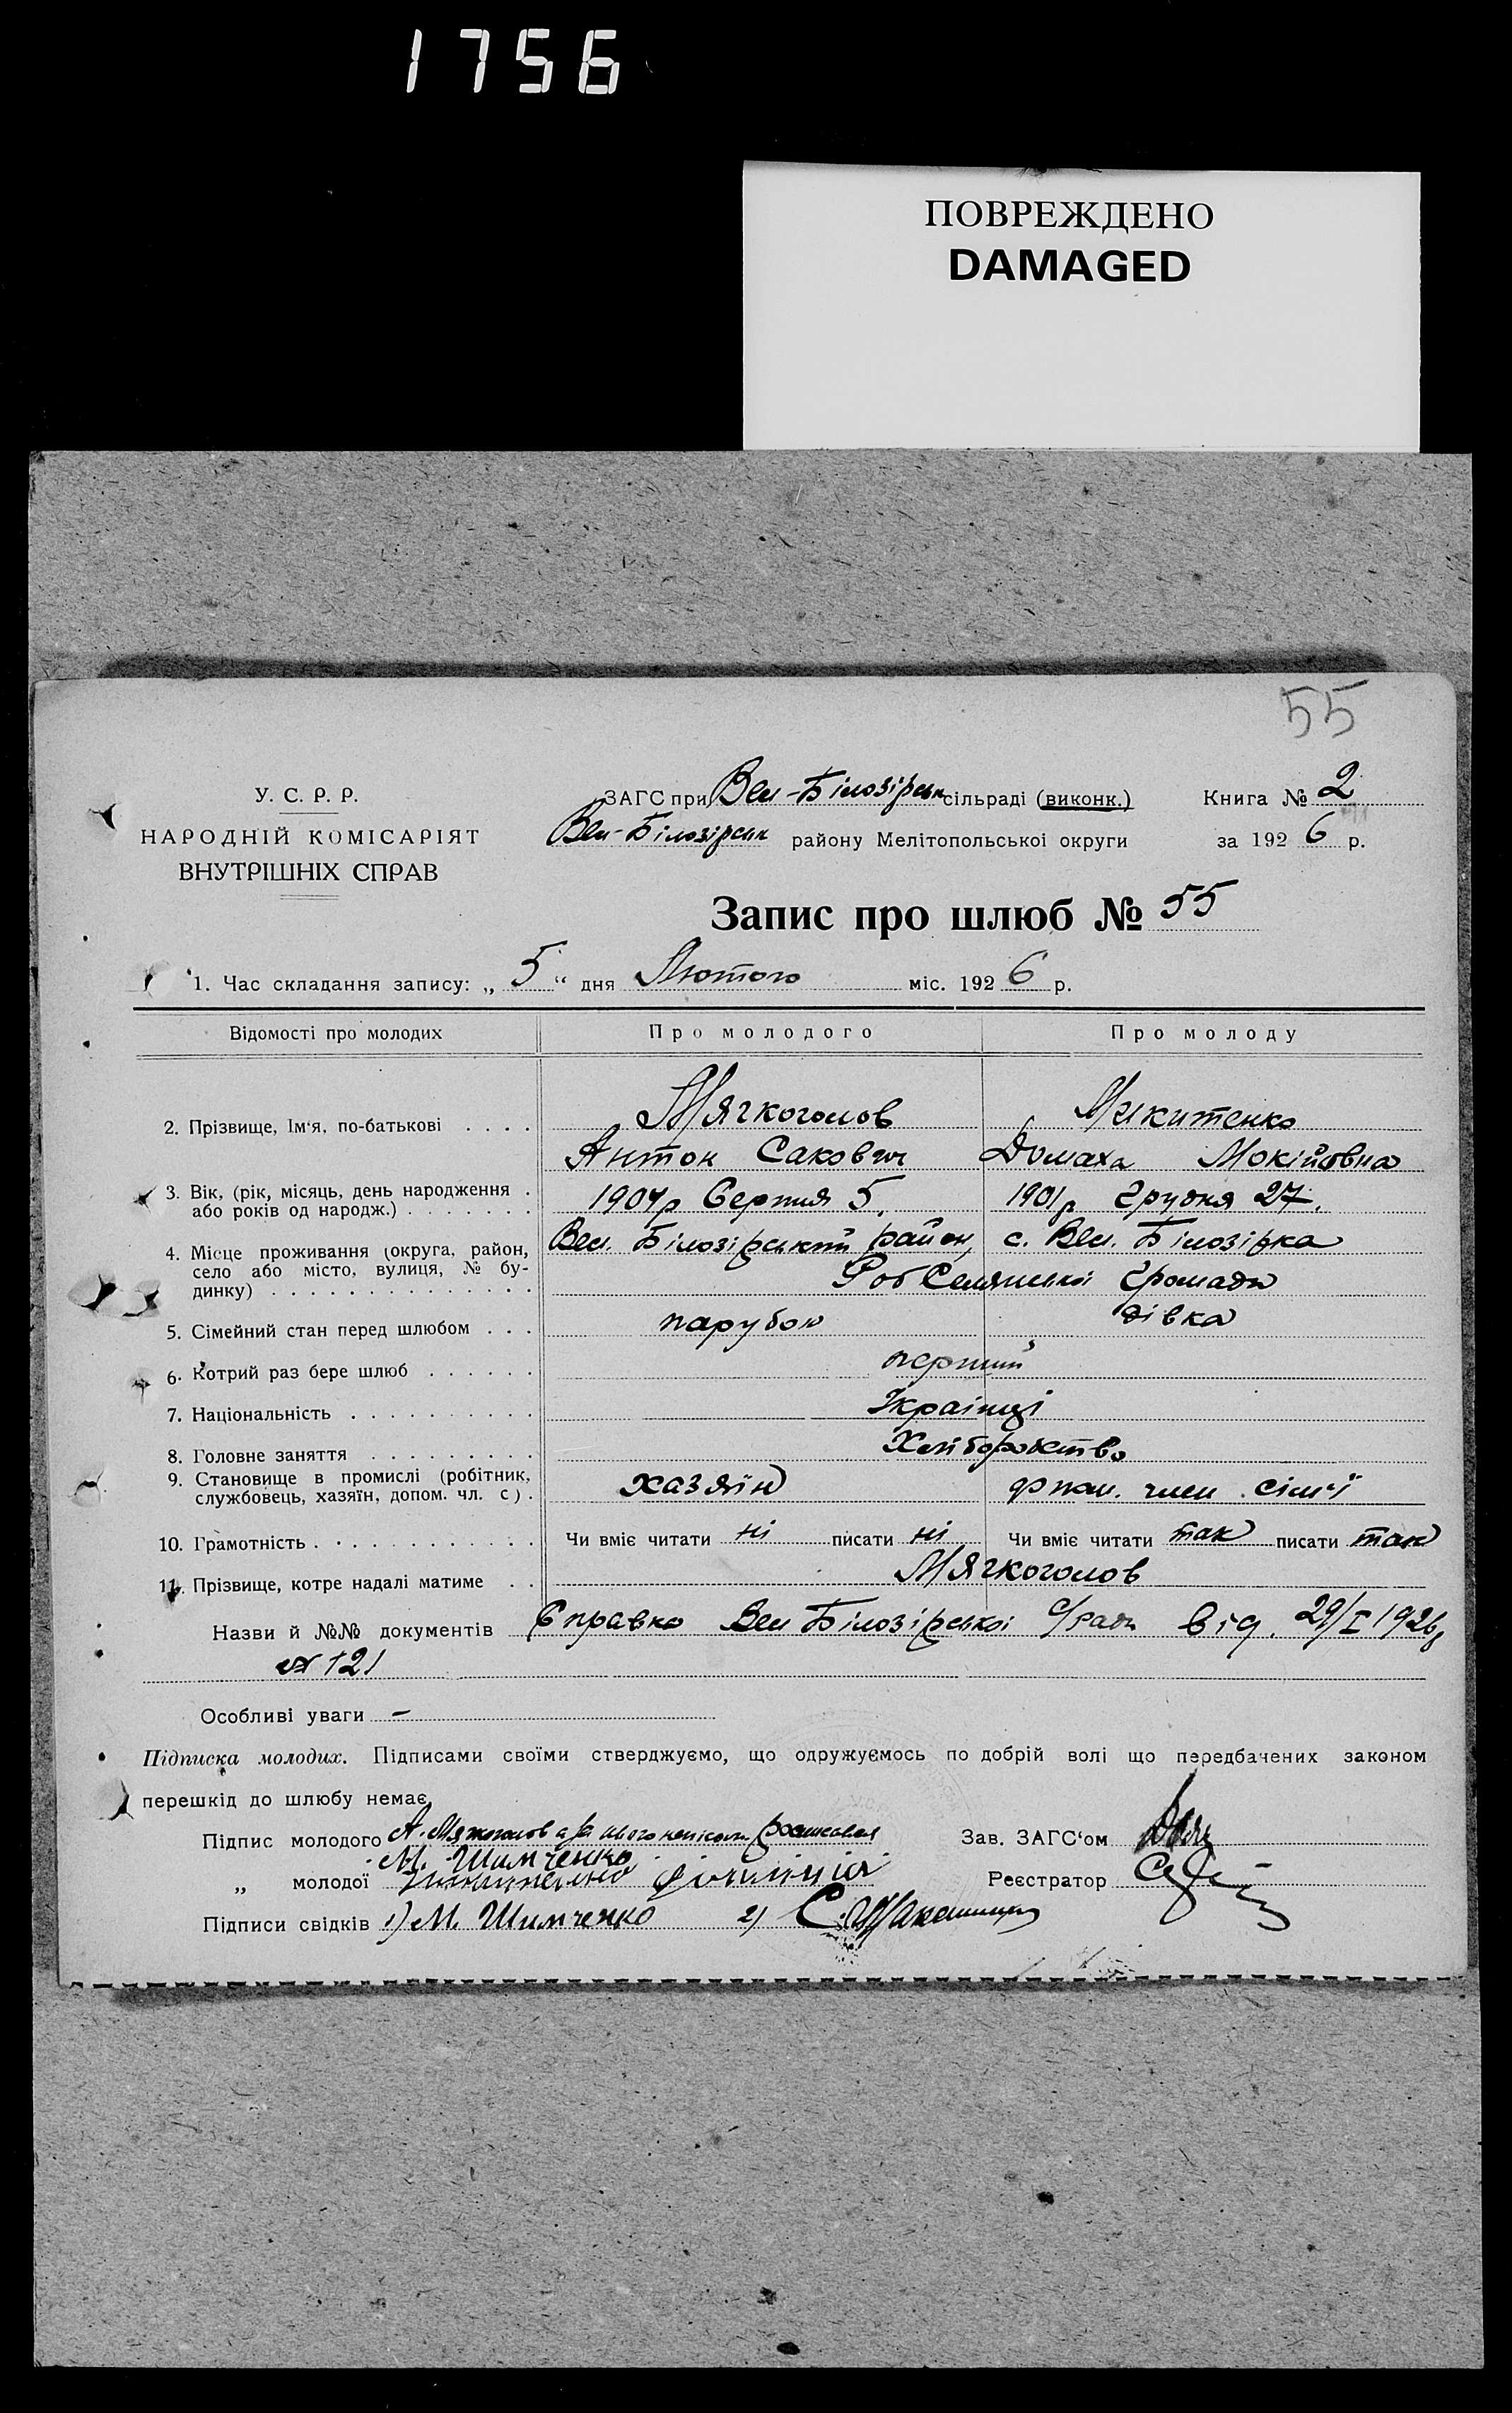 1756
ПОВРЕЖДЕНО
DAMAGED
55
У. С. Р. Р.
НАРОДНІЙ КОМІСАРІЯТ
ВНУТРІШНІХ СПРАВ
ЗАГС при Вел-Білозірськ сільраді (виконк.)
Вел-Білозірськ району Мелітопольської округи
Книга № 2
за 1926 р.
Запис про шлюб № 55
1. Час складання запису: „ 5 “ дня Лютого міс. 1926 р.
Відомості про молодих Про молодого Про молоду
2. Прізвище, Ім‘я, по-батькові . . . . Мягкоголов Микитенко
Антон Сакович Домаха Мокійовна
3. Вік, (рік, місяць, день народження .
або років од народж.) . . . . . . . 1904р Серпня 5. 1901р Грудня 27.
4. Місце проживання (округа, район,
село або місто, вулиця, № бу-
динку) . . . . . . . . . . . . . .
Вел. Білозірський район, с. Вел. Білозірка
Роб Селянської Громади
5. Сімейний стан перед шлюбом . . . парубок дівка
6. Котрий раз бере шлюб . . . . . . перший
7. Національність . . . . . . . . . . Українці
8. Головне заняття . . . . . . . . . Хліборобство
9. Становище в промислі (робітник,
службовець, хазяїн, допом. чл. с) . хазяїн член сім‘ї
10. Грамотність . . . . . . . . . . . . Чи вміє читати ні писати ні Чи вміє читати так писати так
11. Прізвище, котре надалі матиме . . Мягкоголов
Назви й №№ документів Справка Вел Білозірської с/ради від. 29/I 1926р
№ 121
Особливі уваги –
Підписка молодих. Підписами своїми стверджуємо, що одружуємось по добрій волі що передбачених законом
перешкід до шлюбу немає.
Підпис молодого А. Мягкоголов а за його
М. Шимченко
„ молодої
Підписи свідків 1) М. Шимченко 2) С.
Зав. ЗАГС‘ом
Реєстратор